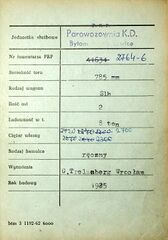 P.K.P.
Jednostka służbowa
Parowozownia K.D.
Bytom
Nr inwentarza PKP
41634 2764-6
Szerokość toru
785 mm
Rodzaj wagonu
Slh
Ilość osi
2
Ładowność w t.
8 ton
Ciężar własny
2.700
Rodzaj hamulca
ręczny
Wyposażenie
Trelenberg Wrocław
Rok budowy
1925
btm 3 1192-62 6000